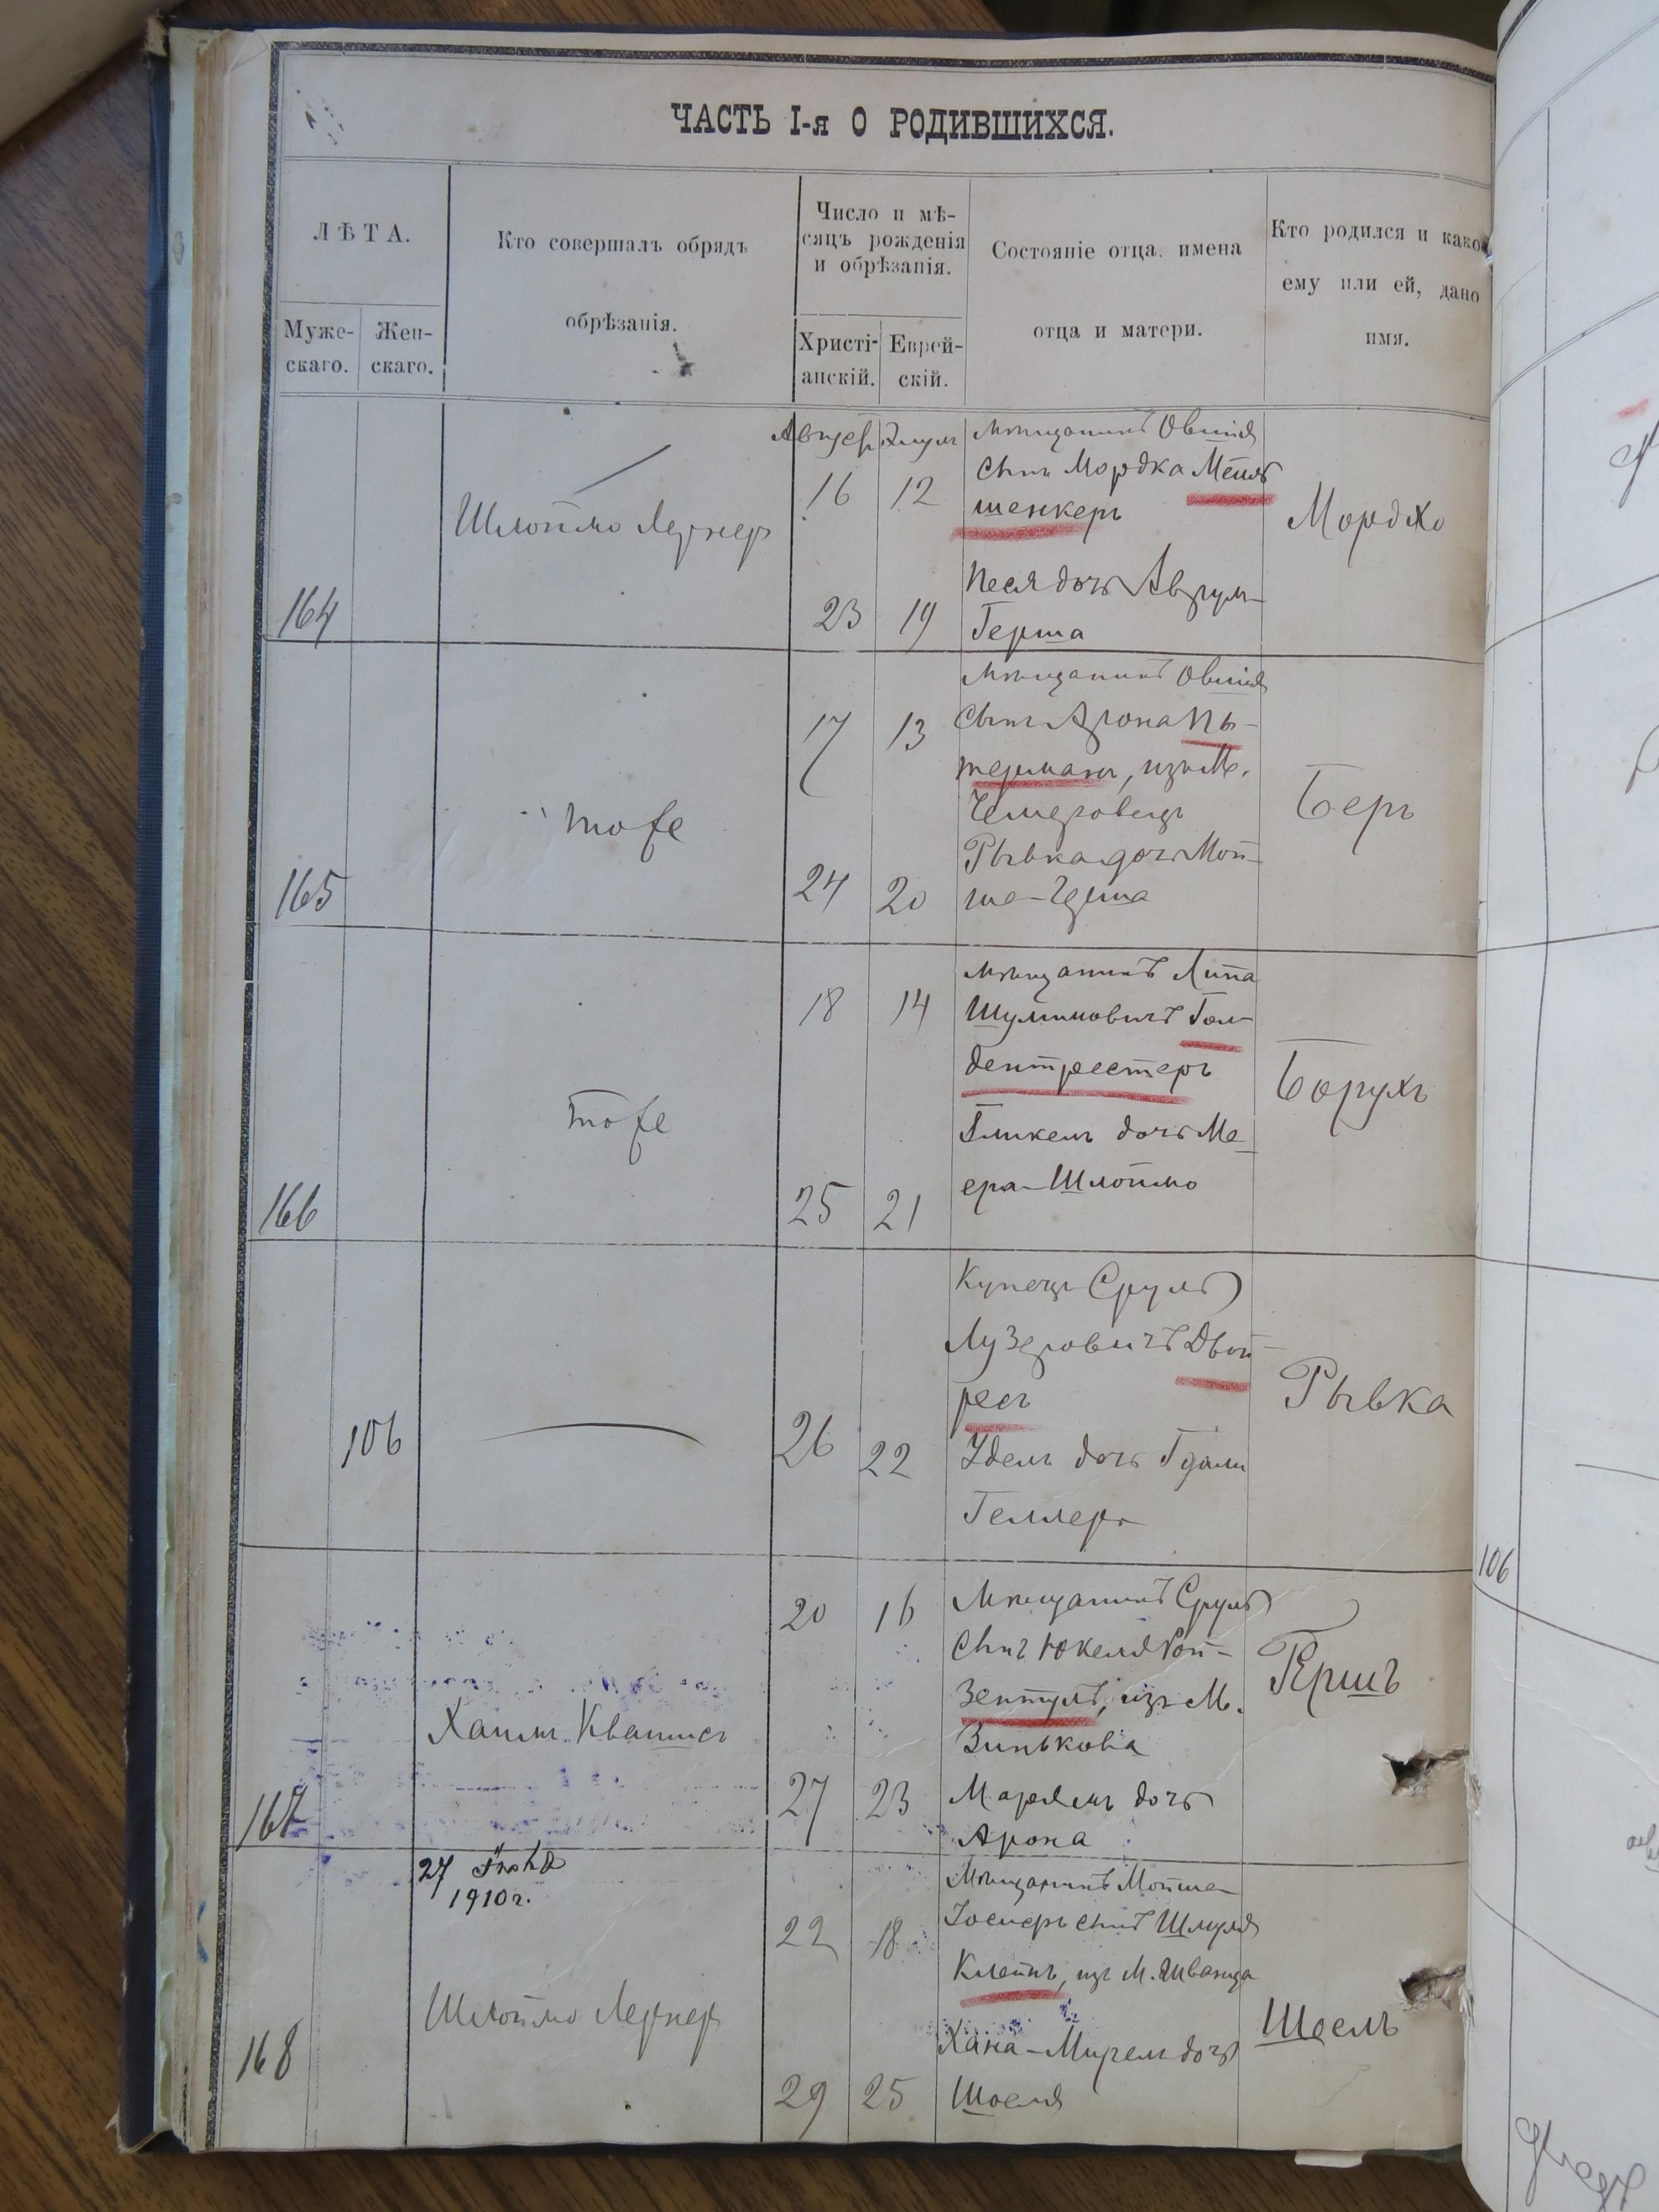 ЧАСТЬ I-я О РОДИВШИХСЯ.
ЛѢТА.
Муже-
скаго.
Жен-
скаго.
Кто совершалъ обрядъ
обрѣзанія.
Число и мѣ-
сяцъ рожденія
и обрѣзанія.
Христі-
анскій.
Еврей-
скій.
Состояніе отца, имена
отца и матери.
Кто родился и како
ему или ей, дано
имя.
164
Шлоймо Лернер
Август Элул
16 12
23 19
Мѣщанинъ Овшія
сынъ Мордка Мейль
шенкеръ
Песя дочь Аврум-
Герша
Мордхо
165
тоже
17 13
24 20
Мѣщанинъ Овшія
сынъ Арона Пы-
терманъ, изъ М.
Чемеровецъ
Рывка дочь Мой-
ше-Герша
Беръ
166
тоже
18 14
25 21
Мѣщанинъ Липа
Шулимовичъ Гол-
дентрестеръ
Гликель дочь Ме-
ера-Шлоймо
Борухъ
106
26 22
Купецъ Сруль
Лузеровичъ Двой-
ресъ
Удель дочь Гдали
Геллера
Рывка
167
Хаимъ Квашисъ
20 16
27 23
Мѣщанинъ Сруль
сынъ Юкеля Рой-
зентулъ, изъ М.
Зинькова
Марямъ дочь
Арона
Гершъ
168
27
1910 г.
Шлоймо Лернер
22 18
29 25
Мѣщанинъ Мойше-
Іосиеръ сынъ Шмуля
Клейнъ, изъ М. Жванца
Хана-Мирель дочь
Шоеля
Шоель
106